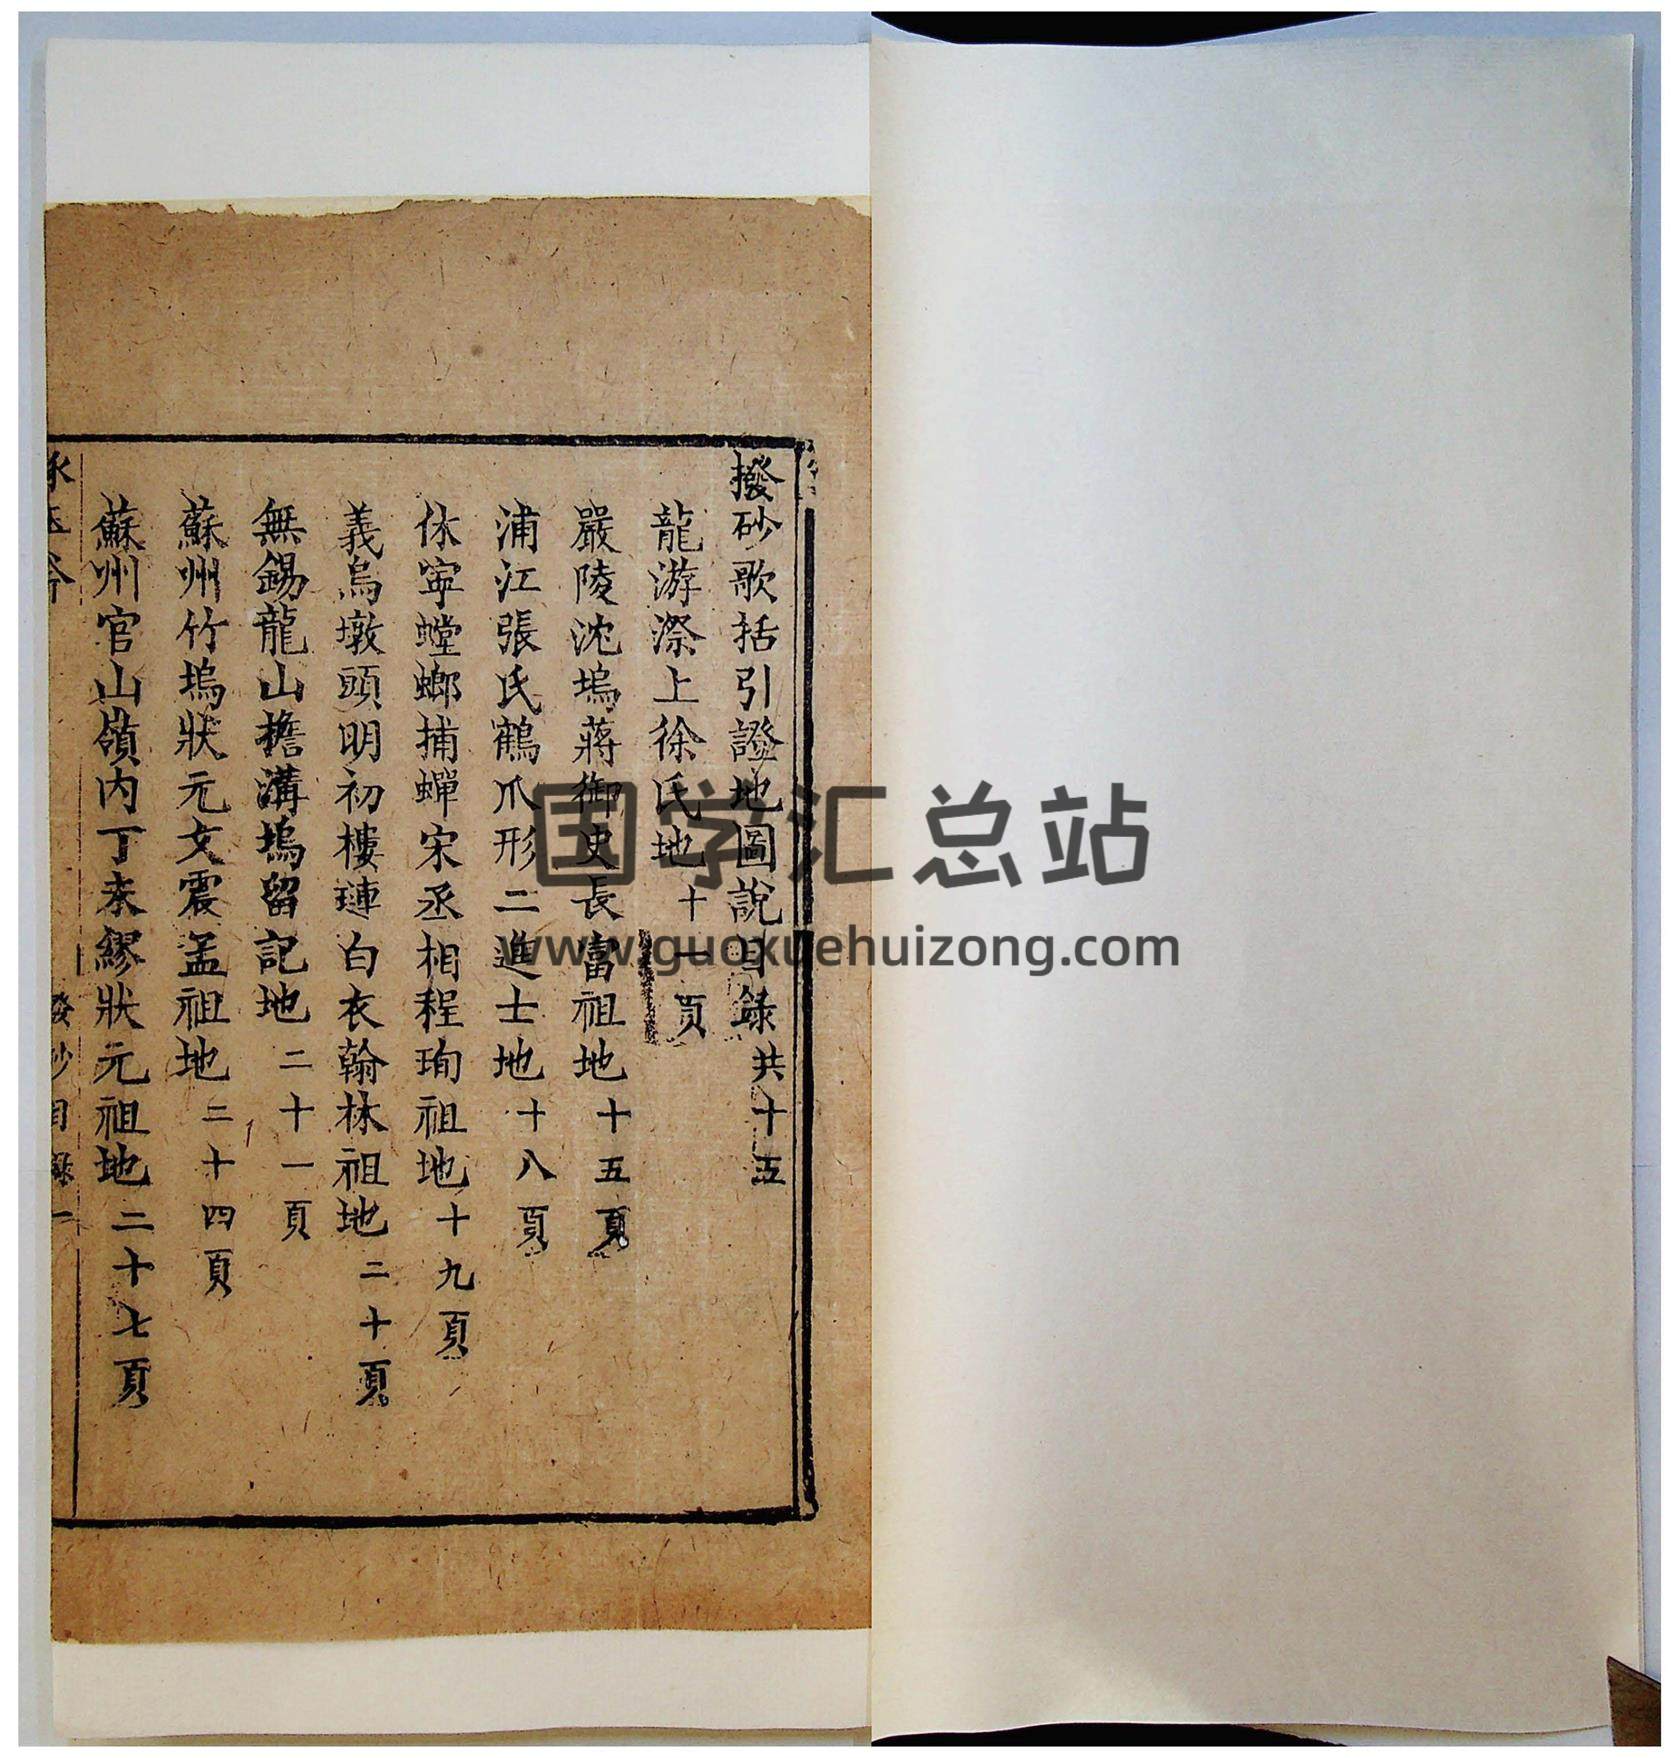 撥砂歌括引證地圖說目錄共十五
龍游漈上徐氏地十一頁
嚴陵沈塢蔣御史長富祖地十五頁
浦江張氏鶴爪形二進士地十八頁
休寧螳螂捕蟬宋丞相程珣祖地十九頁
義烏墩頭明初樓璉白衣翰林祖地二十頁
無錫龍山擔溝塢留記地二十一頁
蘇州竹塢狀元文震孟祖地二十四頁
蘇州官山嶺內丁未繆狀元祖地二十七頁
目錄一
国学汇总站
www.guoxuehuizong.com